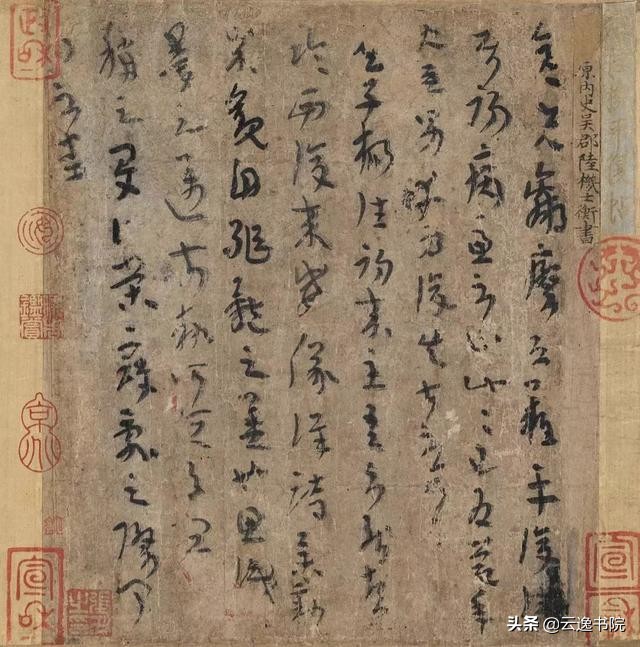 原内史吳郡陸機士衡書
彦先羸瘵恐難平復往屬
初病慮不止此此已爲慶承
使唯男幸爲復失前憂耳
吳子楊往初來主吾不能盡
臨西復來威儀詳跱舉動
成觀自軀體之美也思識
量之邁前執所恒有宜
稱之夏伯榮寇亂之際聞
問不悉
政和
宣和
宣和
头条 @云逸书院